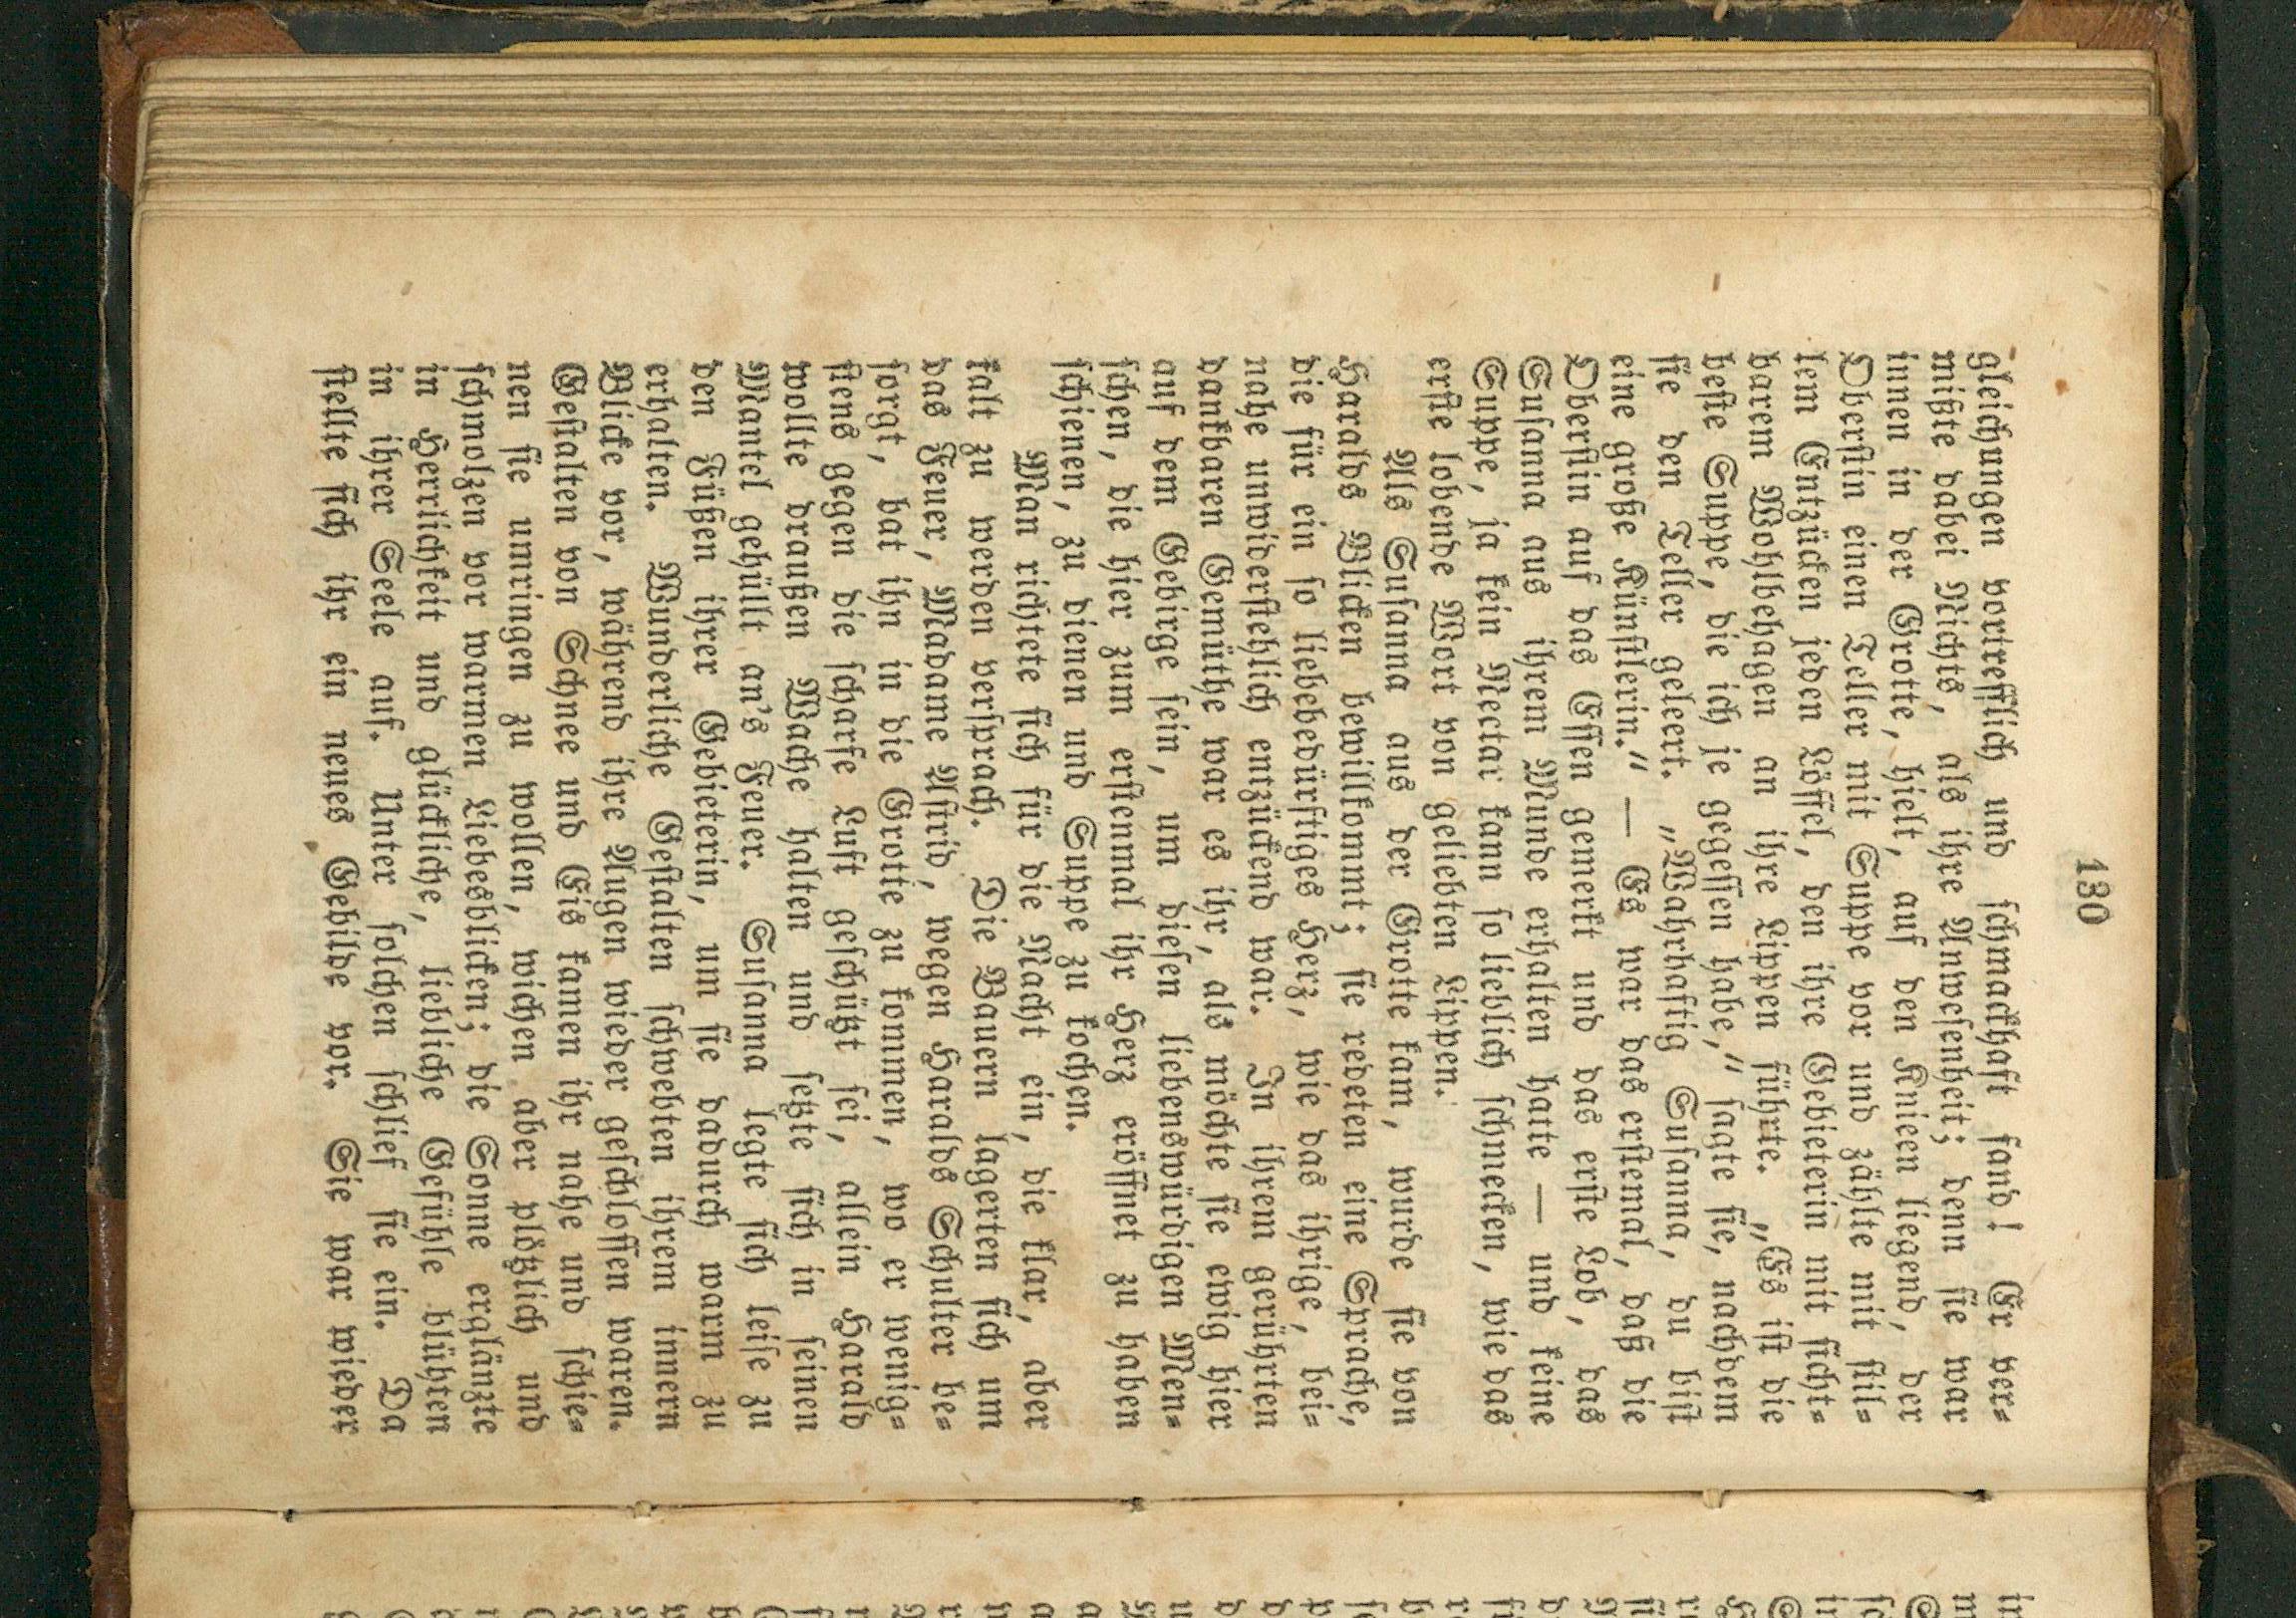 130
gleichungen vortrefflich und schmackhaft fand! Er ver=
mißte dabei Nichts, als ihre Anwesenheit; denn sie war
innen in der Grotte, hielt, auf den Knieen liegend, der
Oberstin einen Teller mit Suppe vor und zählte mit stil=
lem Entzücken jeden Löffel, den ihre Gebieterin mit sicht=
barem Wohlbehagen an ihre Lippen führte. „Es ist die
beste Suppe, die ich je gegessen habe,“ sagte sie, nachdem
sie den Teller geleert. „Wahrhaftig Susanna, du bist
eine große Künstlerin.“ — Es war das erstemal, daß die
Oberstin auf das Essen gemerkt und das erste Lob, das
Susanna aus ihrem Munde erhalten hatte — und keine
Suppe, ja kein Nectar kann so lieblich schmecken, wie das
erste lobende Wort von geliebten Lippen.
Als Susanna aus der Grotte kam, wurde sie von
Haralds Blicken bewillkommt; sie redeten eine Sprache,
die für ein so liebebedürftiges Herz, wie das ihrige, bei=
nahe unwiderstehlich entzückend war. In ihrem gerührten
dankbaren Gemüthe war es ihr, als möchte sie ewig hier
auf dem Gebirge sein, um diesen liebenswürdigen Men=
schen, die hier zum erstenmal ihr Herz eröffnet zu haben
schienen, zu dienen und Suppe zu kochen.
Man richtete sich für die Nacht ein, die klar, aber
kalt zu werden versprach. Die Bauern lagerten sich um
das Feuer, Madame Astrid, wegen Haralds Schulter be=
sorgt, bat ihn in die Grotte zu kommen, wo er wenig=
stens gegen die scharfe Luft geschützt sei, allein Harald
wollte draußen Wache halten und setzte sich in seinen
Mantel gehüllt an's Feuer. Susanna legte sich leise zu
den Füßen ihrer Gebieterin, um sie dadurch warm zu
erhalten. Wunderliche Gestalten schwebten ihrem innern
Blicke vor, während ihre Augen wieder geschlossen waren.
Gestalten von Schnee und Eis kamen ihr nahe und schie=
nen sie umringen zu wollen, wichen aber plötzlich und
schmolzen vor warmen Liebesblicken; die Sonne erglänzte
in Herrlichkeit und glückliche, liebliche Gefühle blühten
in ihrer Seele auf. Unter solchen schlief sie ein. Da
stellte sich ihr ein neues Gebilde vor. Sie war wieder